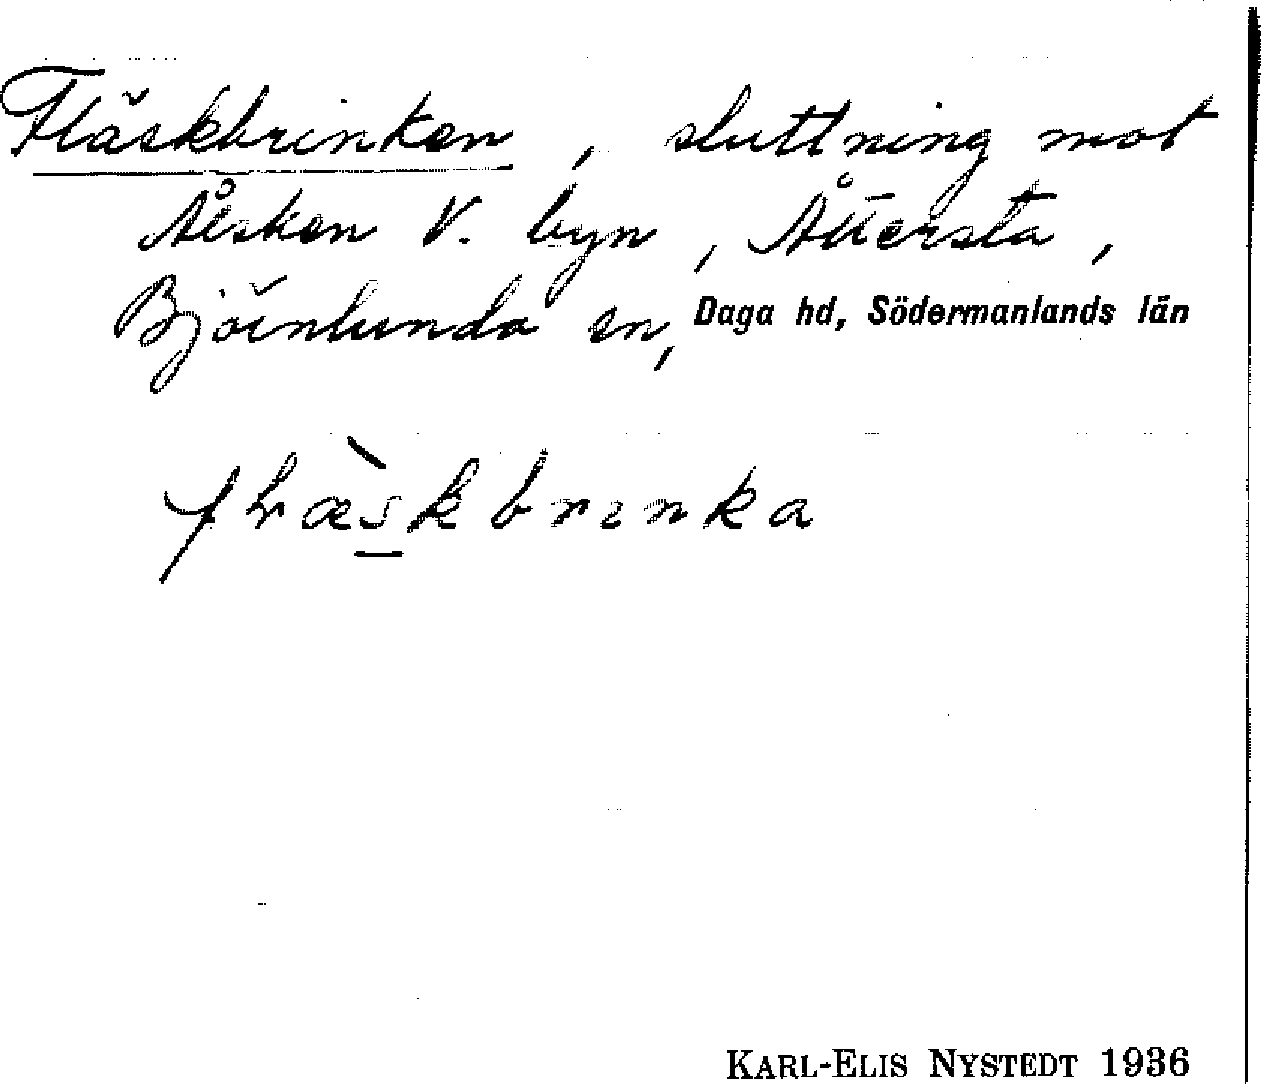 Fläskbrinken, sluttning mot
V. byn, Åttersta,
Björnlunda sn, Daga hd, Södermanlands län
KARL-ELIS NYSTEDT 1936